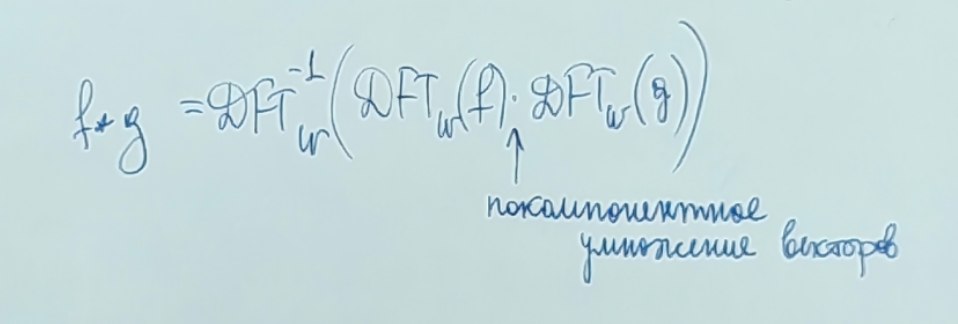 f * g = DFT_w^{-1}(DFT_w(f) · DFT_w(g))
покомпонентное
умножение векторов